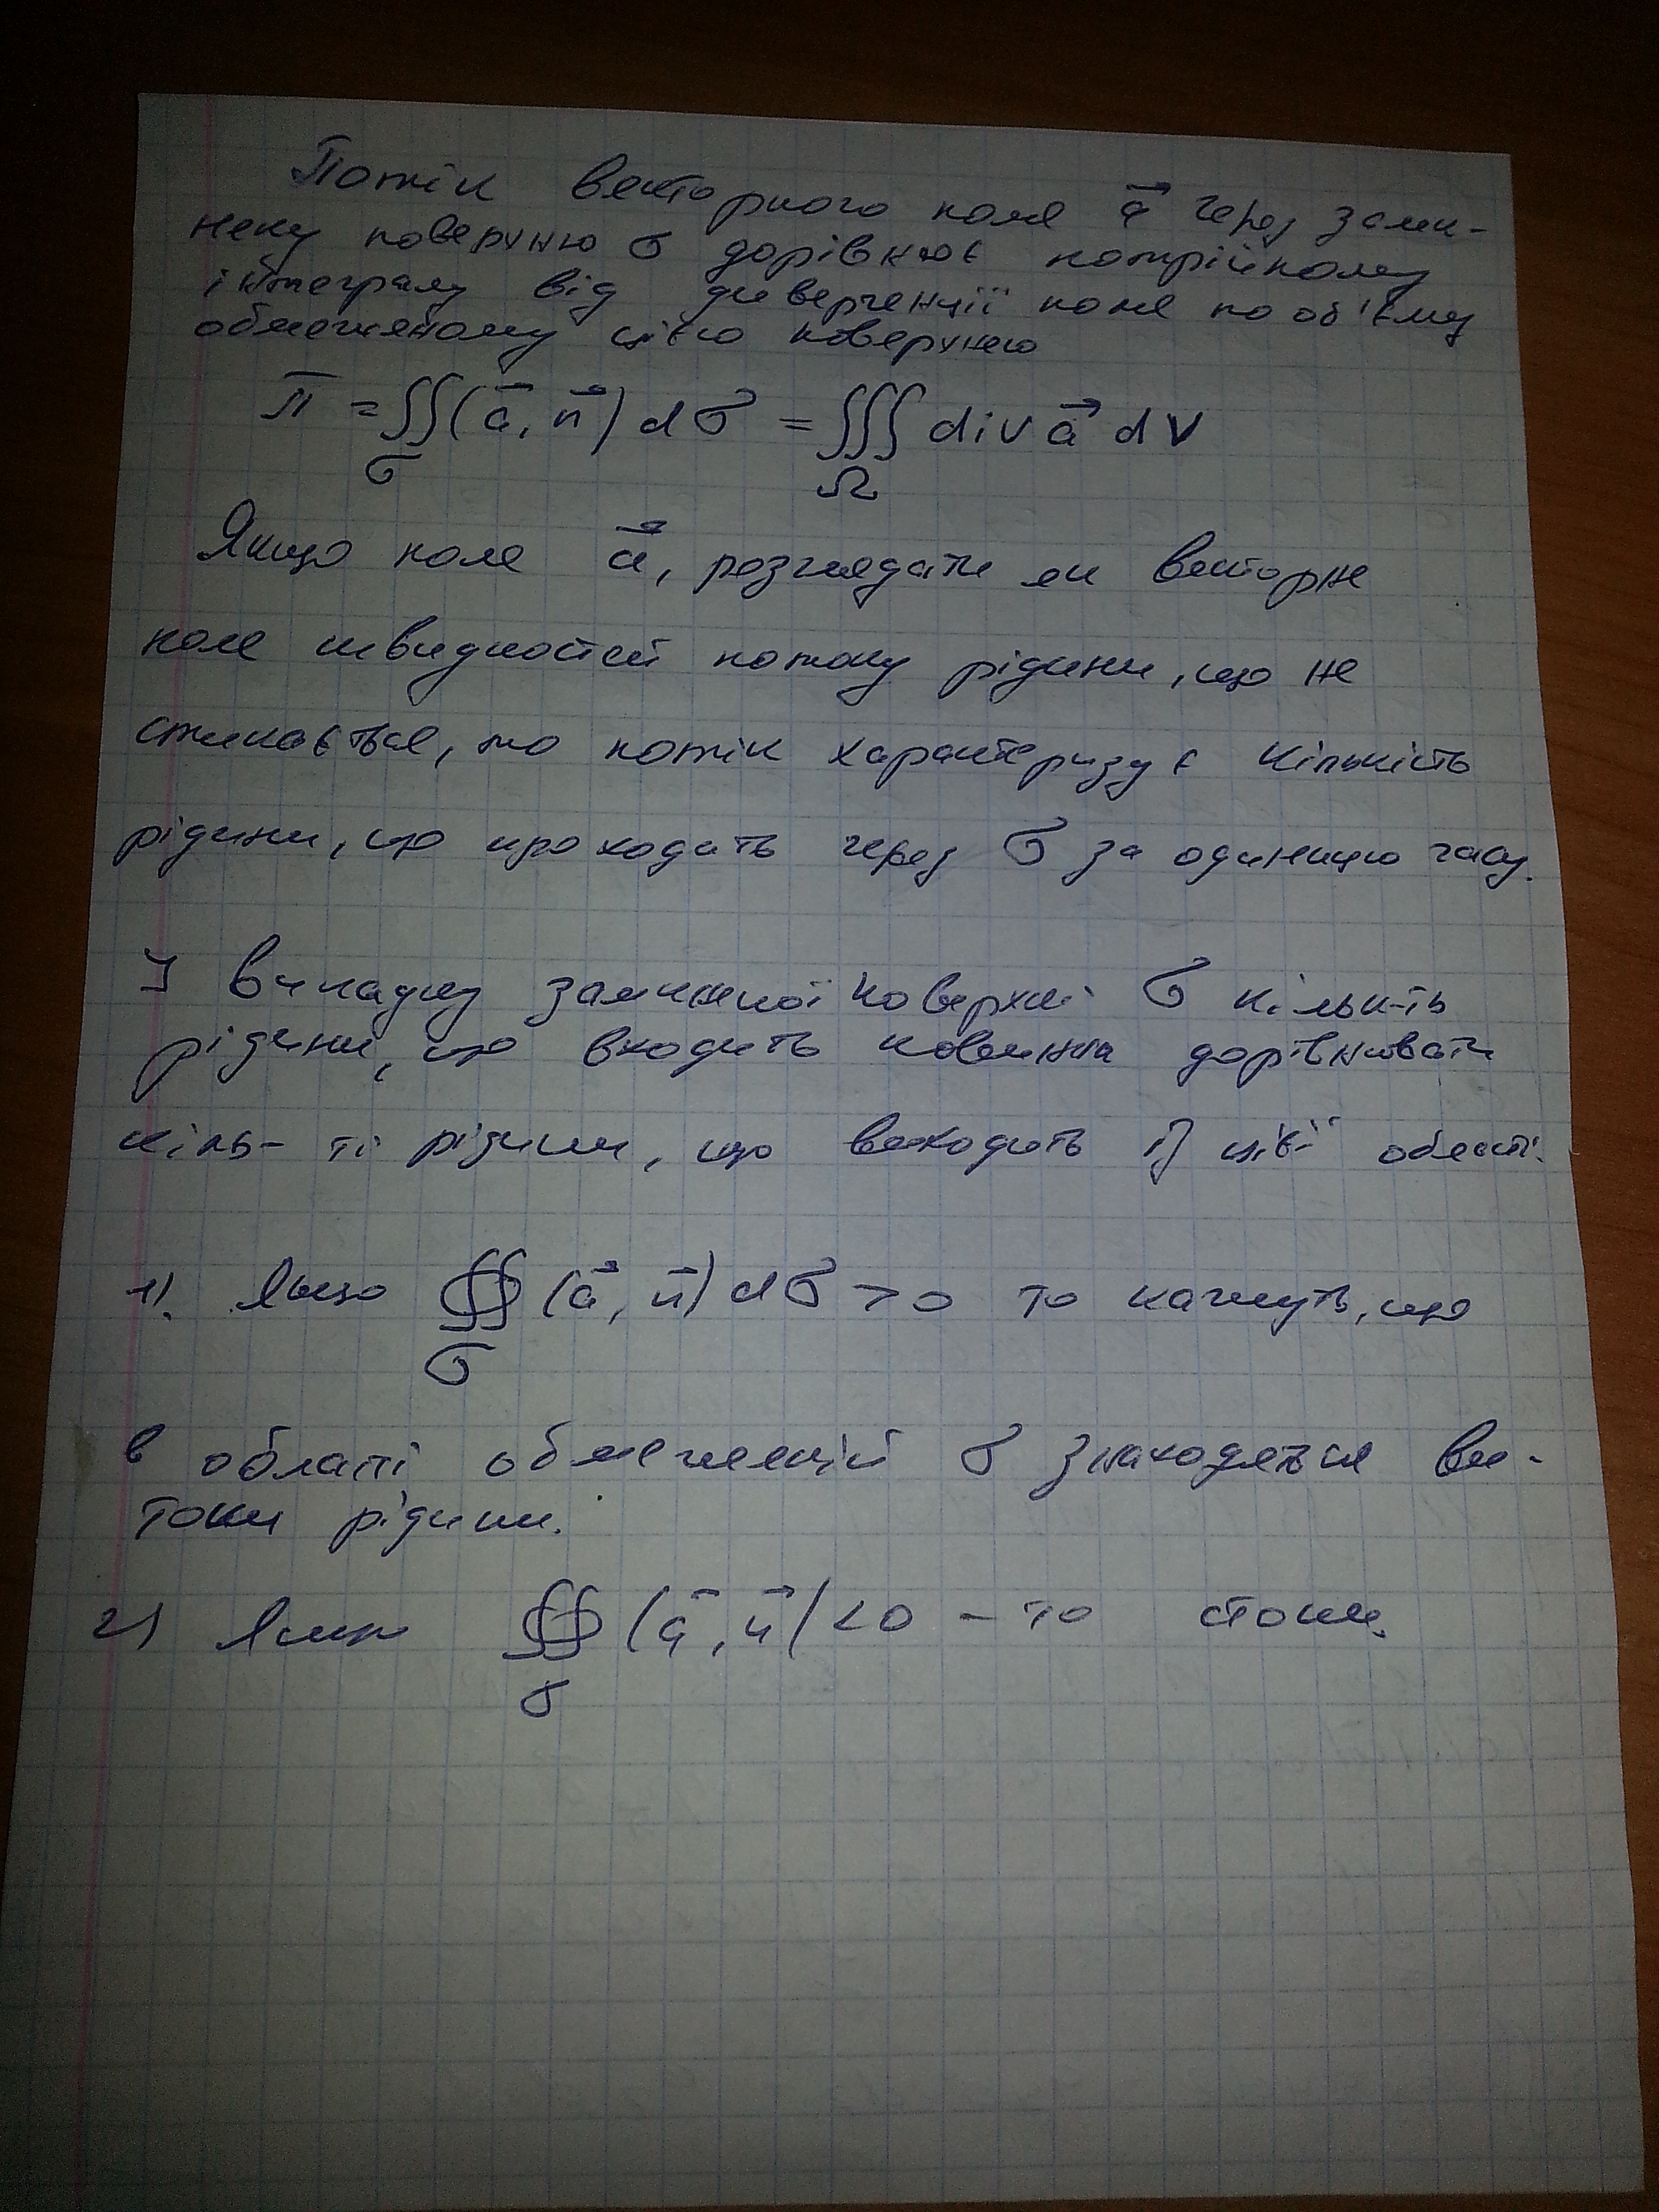 Потік векторного поля a⃗ через замк-
нену поверхню σ дорівнює потрійному
інтегралу від дивергенції поля по об'єму
обмеженому цією поверхнею
П = ∬(a⃗, n⃗) dσ = ∭ div a⃗ dV
σ Ω
Якщо поле a⃗, розглядати як векторне
поле швидкостей потоку рідини, що не
стискається, то потік характеризує кількість
рідини, що проходить через σ за одиницю часу.
У випадку замкненої поверхні σ кільк-ть
рідини, що входить повинна дорівнювати
кіль-ті рідини, що виходить із цієї області.
1). Якщо ∯ (a⃗, n⃗) dσ > 0 то кажуть, що
σ
в області обмеженій σ знаходяться ви-
токи рідини.
2) Якщо ∯ (a⃗, n⃗) < 0 – то стоки.
σ